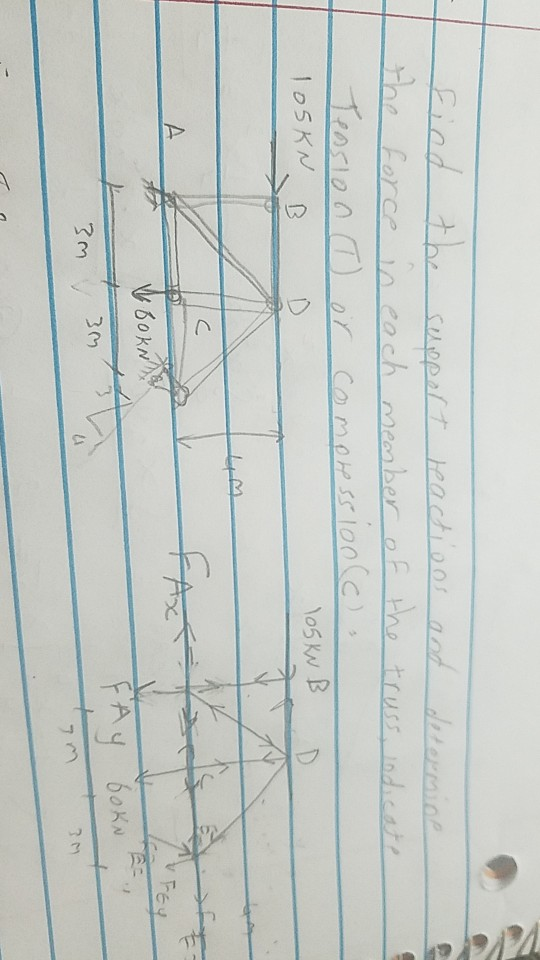 find the support reactions and determine
the force in each member of the truss, indicate
Tension(T) or compression(c).
105KN
B
D
A
C
60KN
3m
3m
3
4
4m
105KN B
D
FAx
C
E
FAy
60KN
FEy
4m
3m
3m